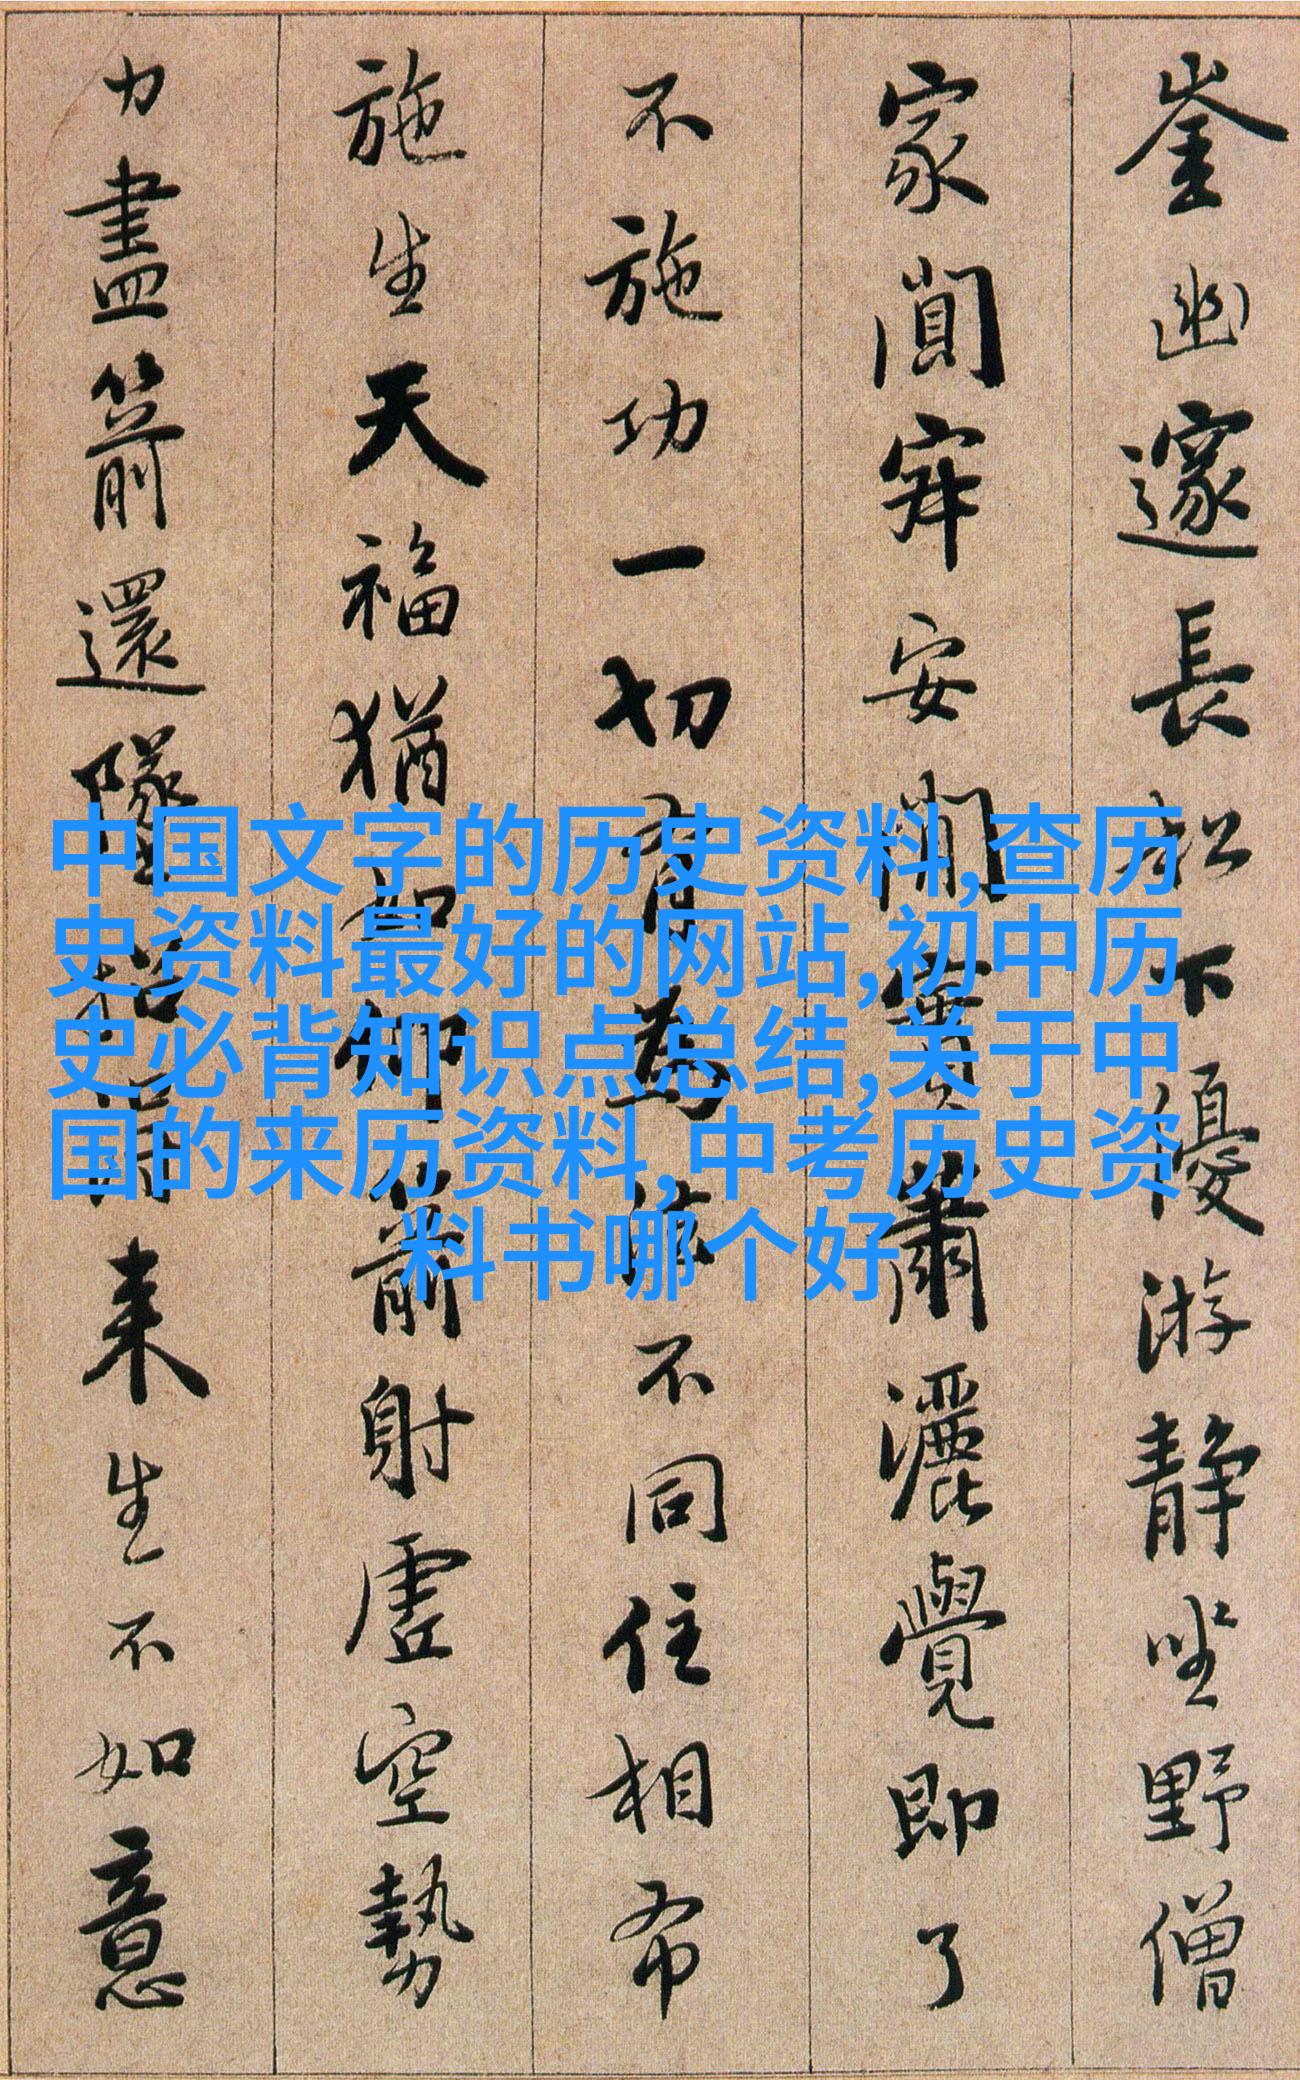 崟幽邃長松下優游静坐野僧
家闃寂安閑實蕭灑覺即了
不施功一切有為法不同住相布
施生天福猶如仰箭射虛空勢
力盡箭還墜招得来生不如意
中国文字的历史资料,查历
史资料最好的网站,初中历
史必背知识点总结,关于中
国的来历资料,中考历史资
料书哪个好